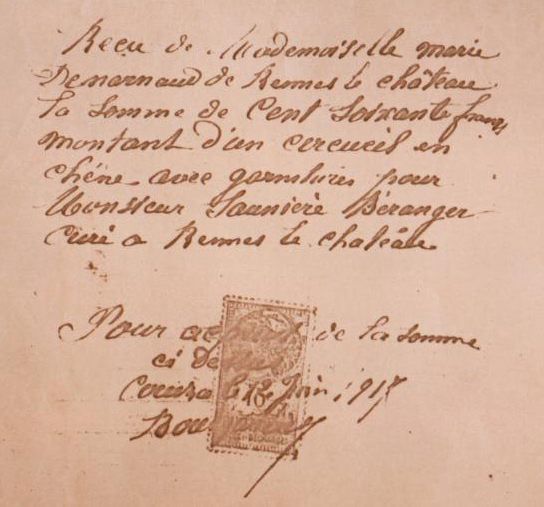 Recu de Mademoiselle marie
Denarnaud de Rennes le château
la somme de Cent Soixante francs
montant d'un cercueil en
chêne avec garnitures pour
Monsieur Saunière Béranger
Curé a Rennes le chateau
Pour de la somme
ci
Couiza le 12 Juin 1917